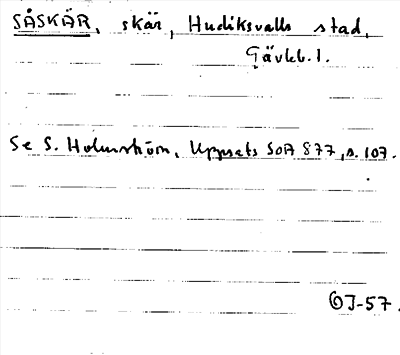 SÅSKÄR, skär, Hudiksvalls stad,
Gävleb. l.
Se S. Holmström, Uppsats SOA 877, s. 107.
OJ-57.